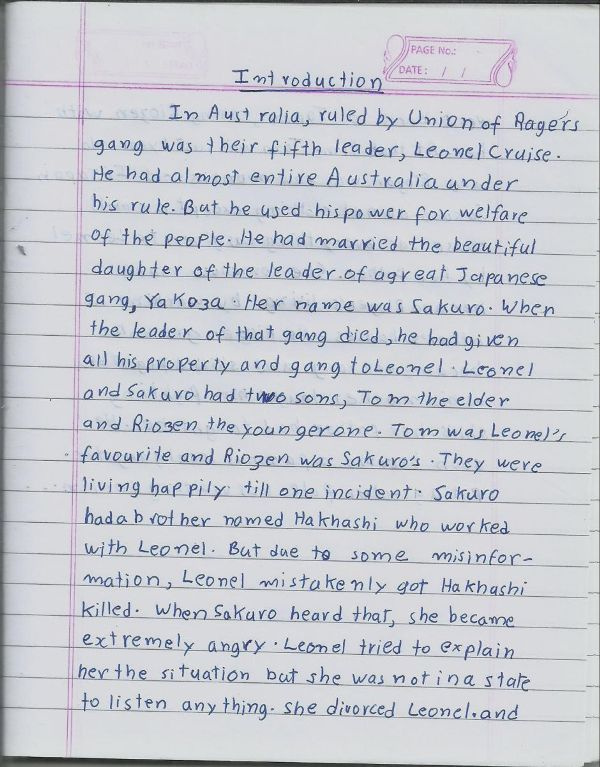 PAGE No.:
DATE: / /
Introduction
In Australia, ruled by Union of Ragers
gang was their fifth leader, Leonel Cruise.
He had almost entire Australia under
his rule. But he used his power for welfare
of the people. He had married the beautiful
daughter of the leader of a great Japanese
gang, Yakoza. Her name was Sakuro. When
the leader of that gang died, he had given
all his property and gang to Leonel. Leonel
and Sakuro had two sons, Tom the elder
and Riozen the younger one. Tom was Leonel's
favourite and Riozen was Sakuro's. They were
living happily till one incident. Sakuro
had a brother named Hakhashi who worked
with Leonel. But due to some misinfor-
mation, Leonel mistakenly got Hakhashi
killed. When Sakuro heard that, she became
extremely angry. Leonel tried to explain
her the situation but she was not in a state
to listen anything. She divorced Leonel. and